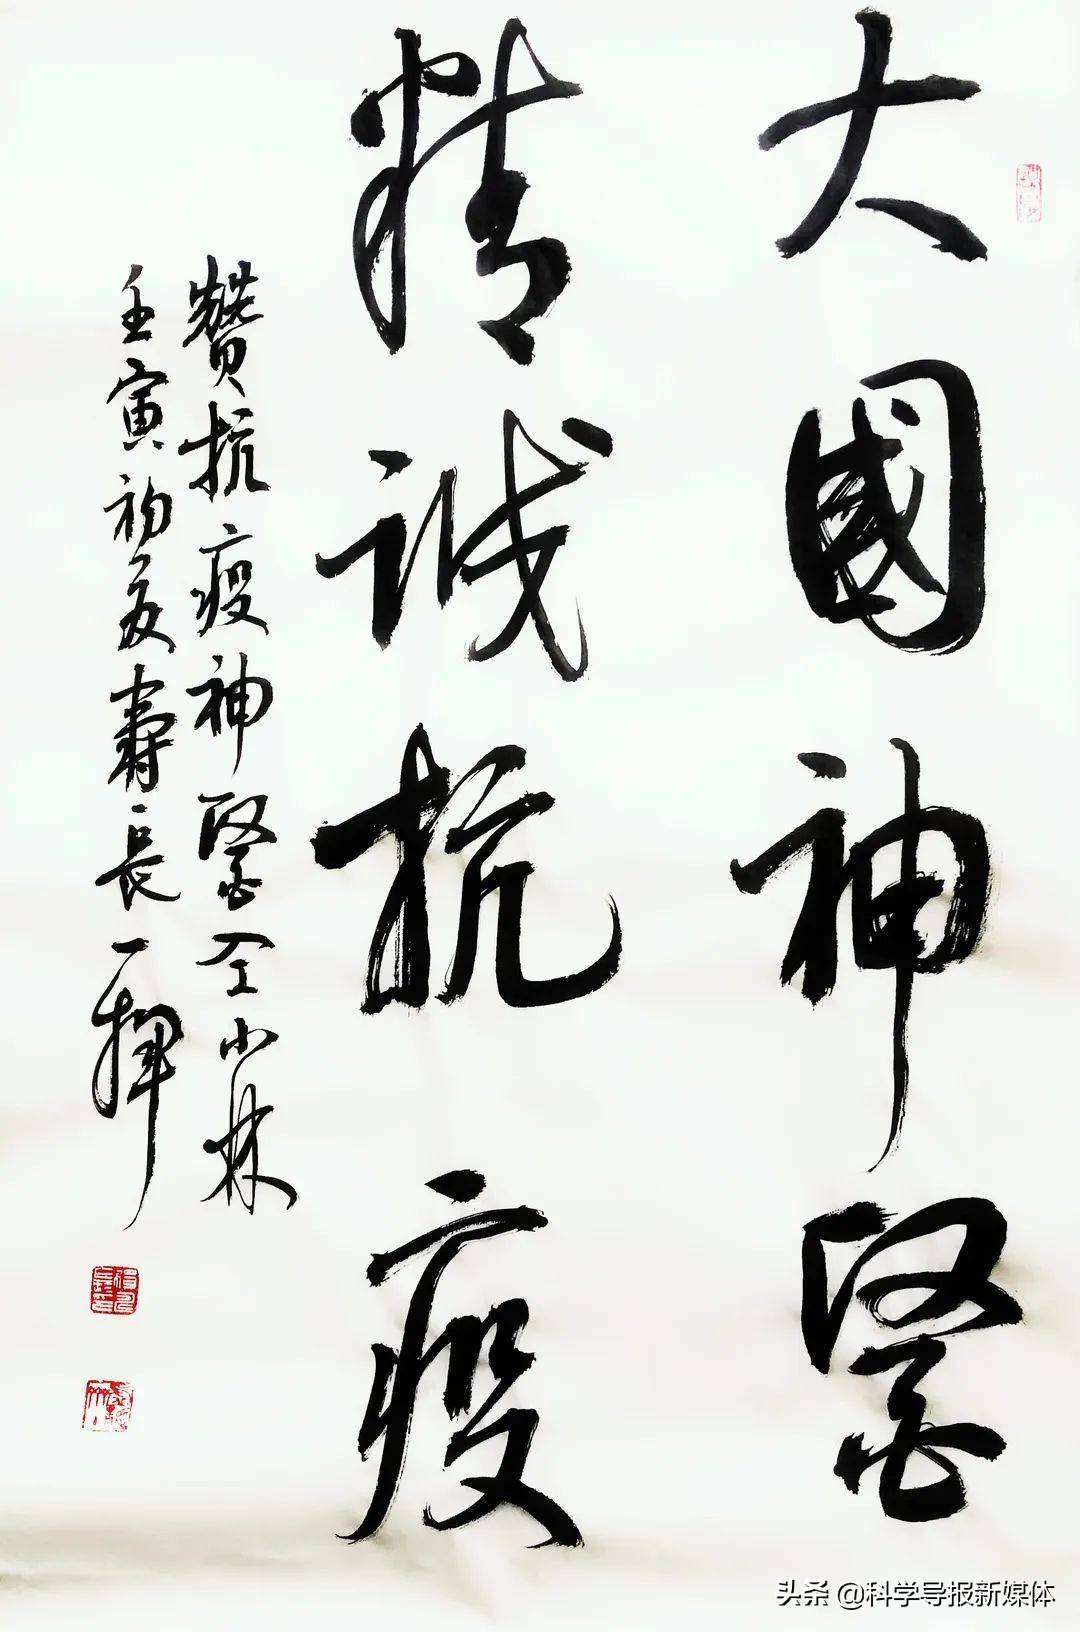 大國神醫
精誠抗疫
贊抗疫神醫仝小林
壬寅初夏壽長一揮
头条 @科学导报新媒体